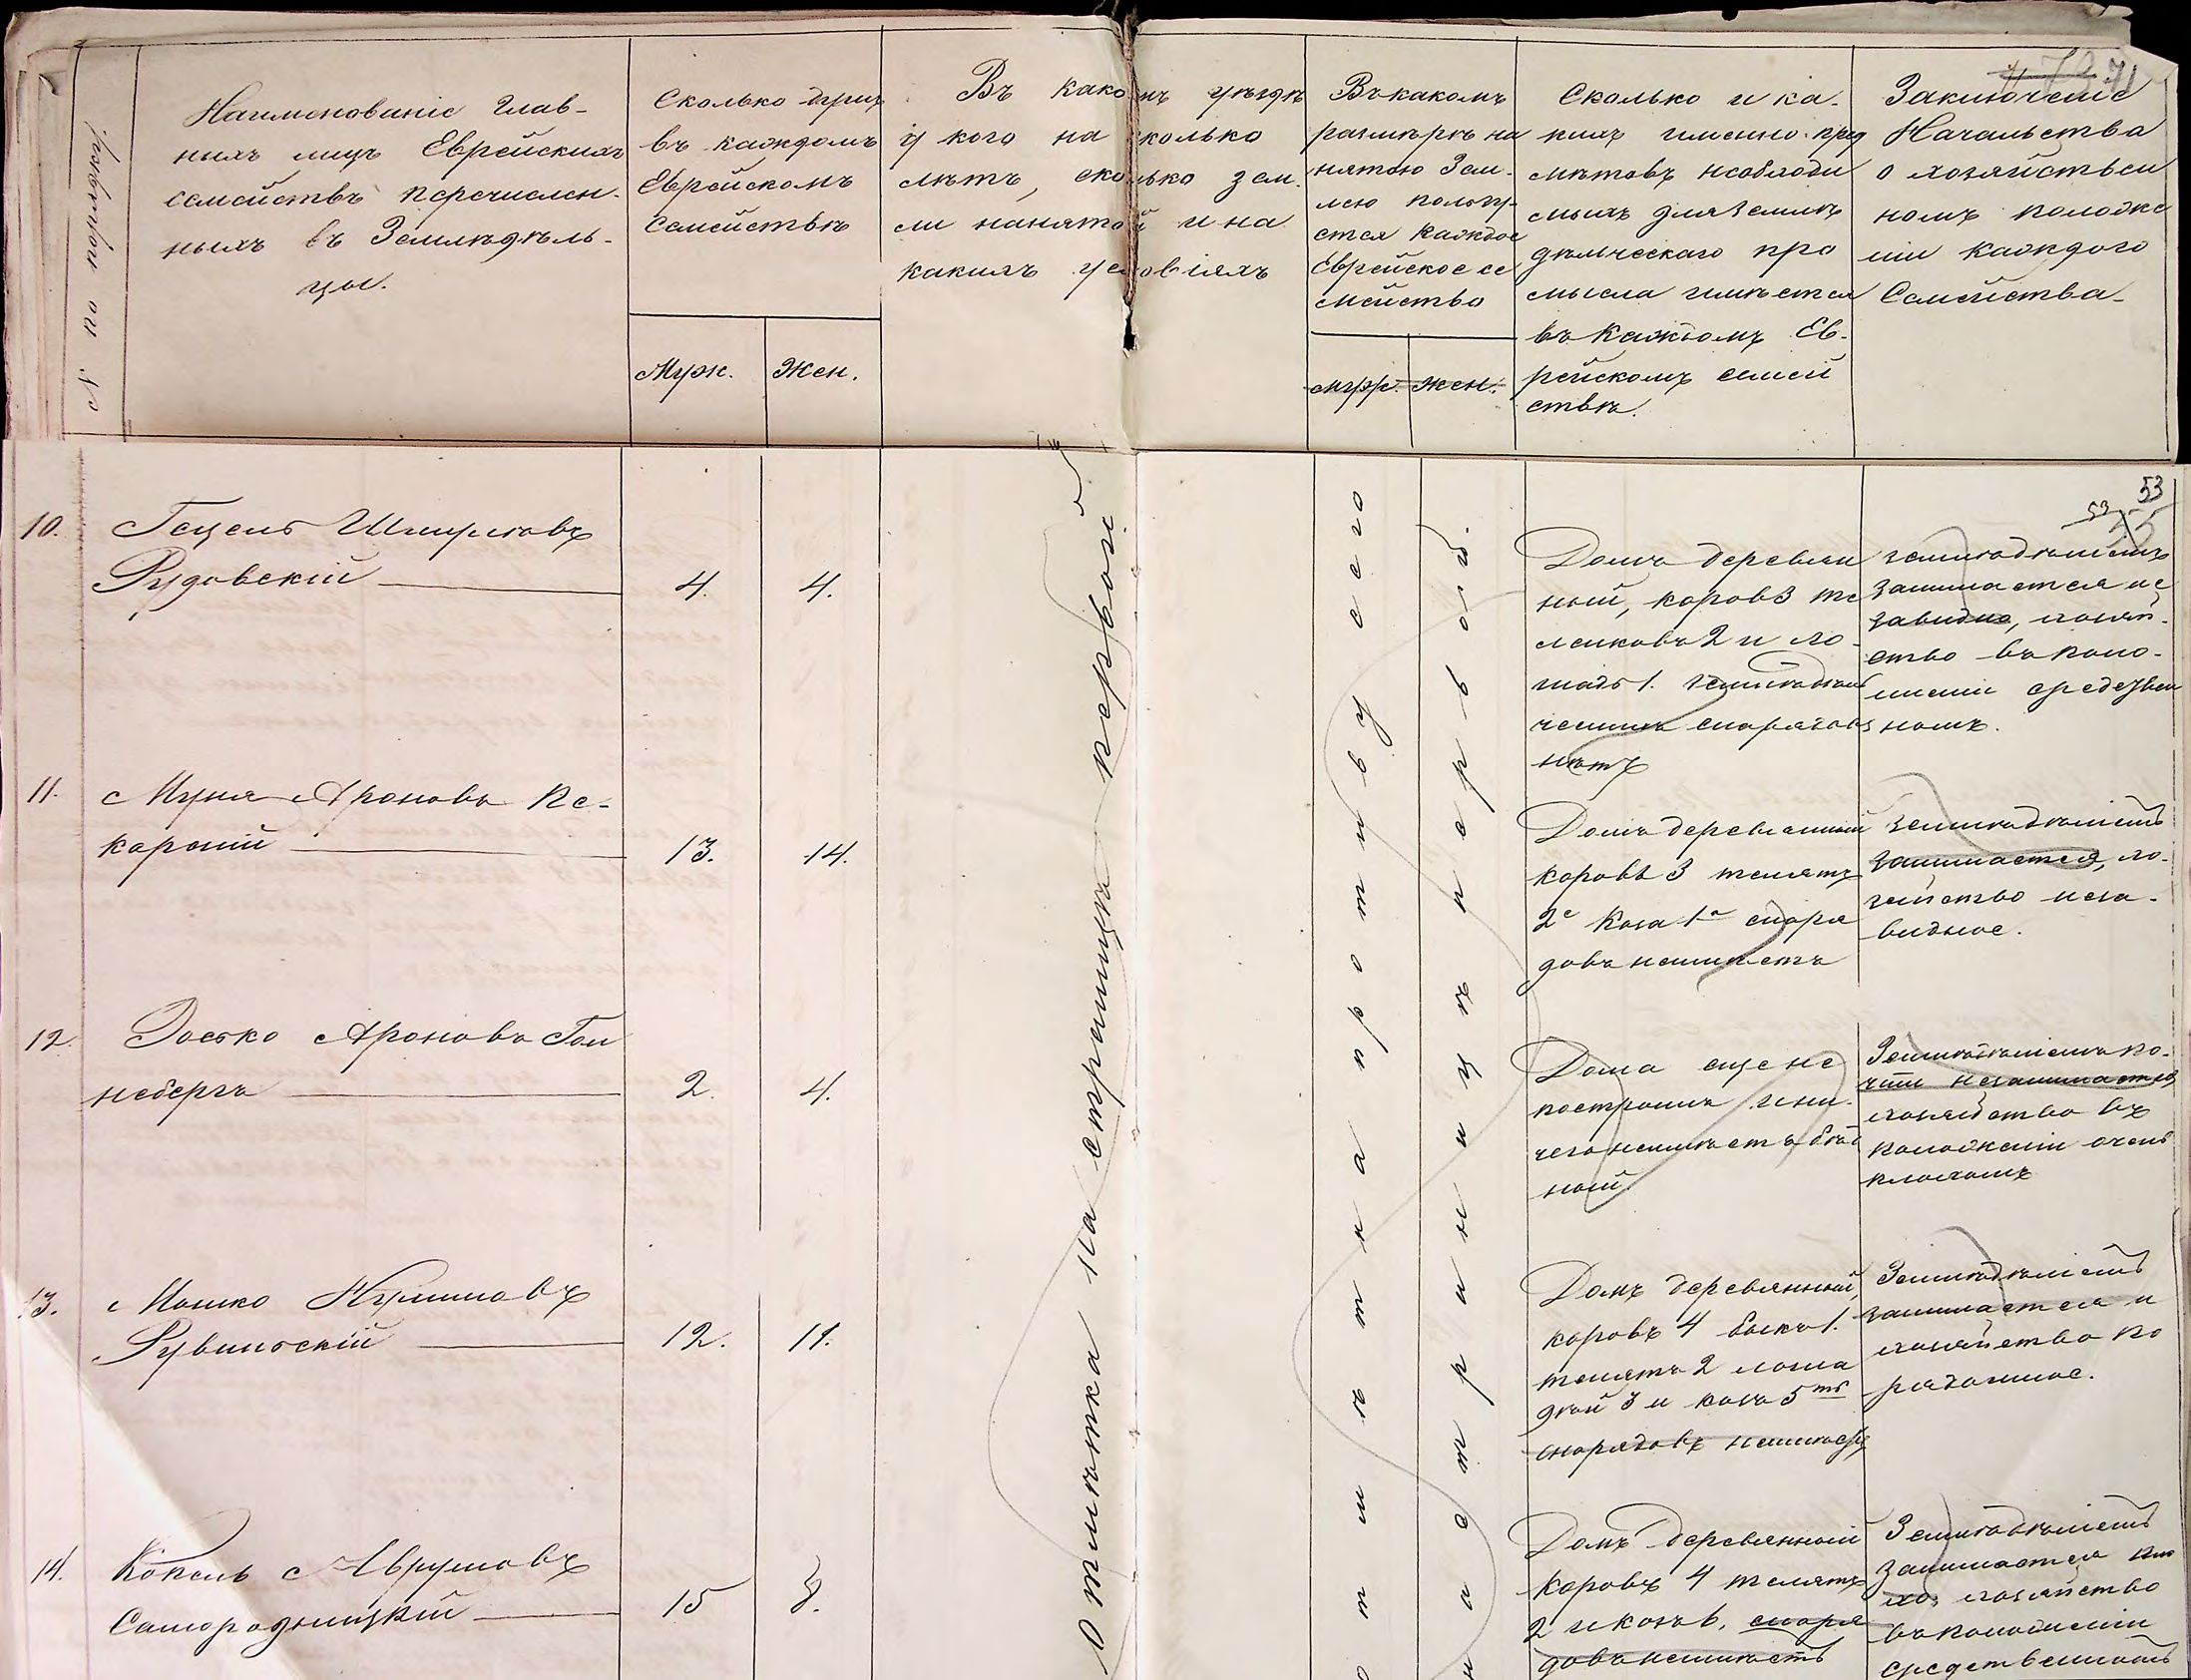 № по порядку
Наименованіе глав-
ныхъ лицъ Еврейскихъ
семействъ перечислен-
ныхъ въ Земледѣль-
цы.
Сколько душъ
въ каждомъ
Еврейскомъ
Семействѣ
Муж. Жен.
Въ какомъ уѣздѣ
у кого на сколько
лѣтъ, сколько зем.
ли нанятой и на
какихъ условіяхъ
Въ какомъ
размѣрѣ на
нятою Зем-
лею пользу-
ется каждое
Еврейское се
мейство
муж. жен.
Сколько и ка-
кихъ именно пред
мѣтовъ необходи
мыхъ для земле
дѣльческаго про
мысла имѣется
въ каждомъ Ев-
рейскомъ семей
ствѣ.
71
Заключеніе
Начальства
о хозяйствен
номъ положе
ніи каждого
Семейства.
53
10. Гецель Шмулювъ
Рудовскій 4. 4.
Домъ деревян
ный, коровъ 3 те
ленковъ 2 и ло-
шадь 1. земледѣль
ческихъ снарядовъ
нѣтъ
земледѣліемъ
занимается не
завидно, хозяй-
ство въ поло-
женіи средствен
номъ.
11. Муня Ароновъ Пе-
карскій 13. 14.
Домъ деревянный
коровъ 3 телятъ
2е Коза 1а снаря
довъ неимѣетъ
земледѣліемъ
занимается, хо-
зяйство неза-
видное.
12. Іосько Ароновъ Гол
небергъ 2. 4.
Дома еще не
построилъ и ни-
чего неимѣетъ бѣд
ный.
Земледѣліемъ по-
чти незанимается
хозяйство въ
положеніи очень
плохомъ
13. Мошко Нухимовъ
Рувинскій 12. 11.
Домъ деревянный,
коровъ 4 быкъ 1.
телятъ 2 лоша
дей 3 и козъ 5ть
снарядовъ неимѣетъ
Земледѣліемъ
занимается и
хозяйство по
рядочное.
14. Копель Аврумовъ
Самородницкій 15 8.
Домъ деревянный
коровъ 4 телятъ
2 и козъ 6. снаря
довъ неимѣетъ
Земледѣліемъ
занимается пло
хо, хозяйство
въ положеніи
средственномъ
Отмѣтка на страницѣ первой
отмѣтка противу сего
на страницѣ первой.